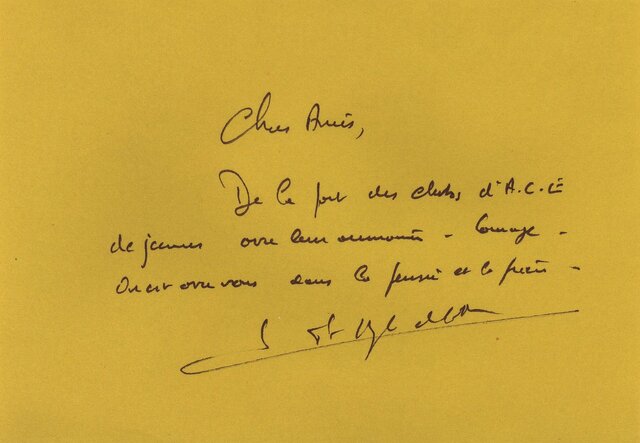 Chers Amis,
De la part des clubs d'A.C.E
de jeunes avec leur aumonier - Courage -
On est avec vous dans la pensée et la prière -